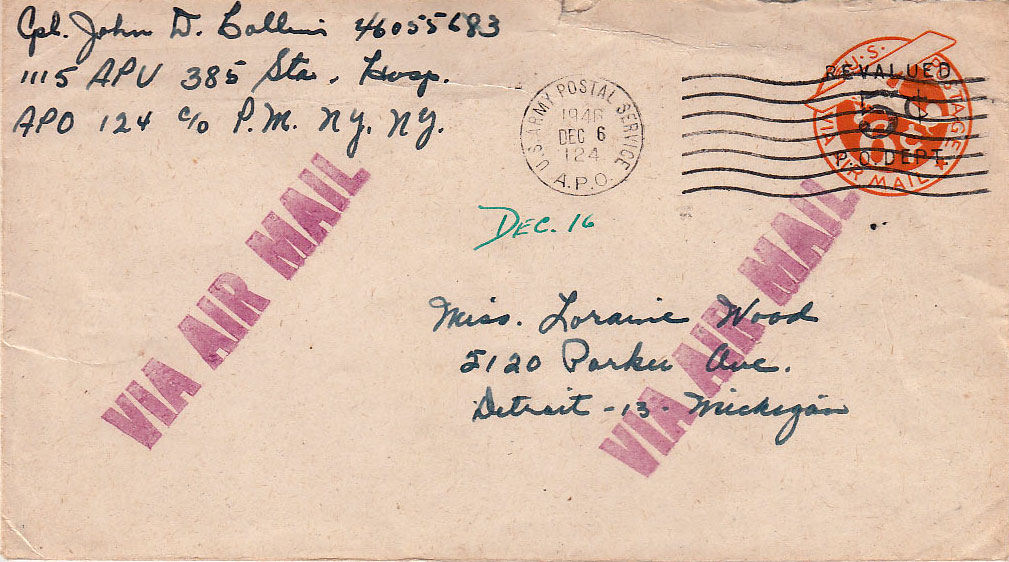 Cpl. John D. Collins 46055683
1115 APU 385 Sta. Hosp.
APO 124 c/o P.M. NY. NY.
U.S. ARMY POSTAL SERVICE
1946
DEC 6
124
A.P.O.
U.S. POSTAGE
REVALUED
5¢
P.O. DEPT.
VIA AIR MAIL
DEC. 16
VIA AIR MAIL
VIA AIR MAIL
Miss. Loraine Wood
5120 Parker Ave.
Detroit -13- Michigan